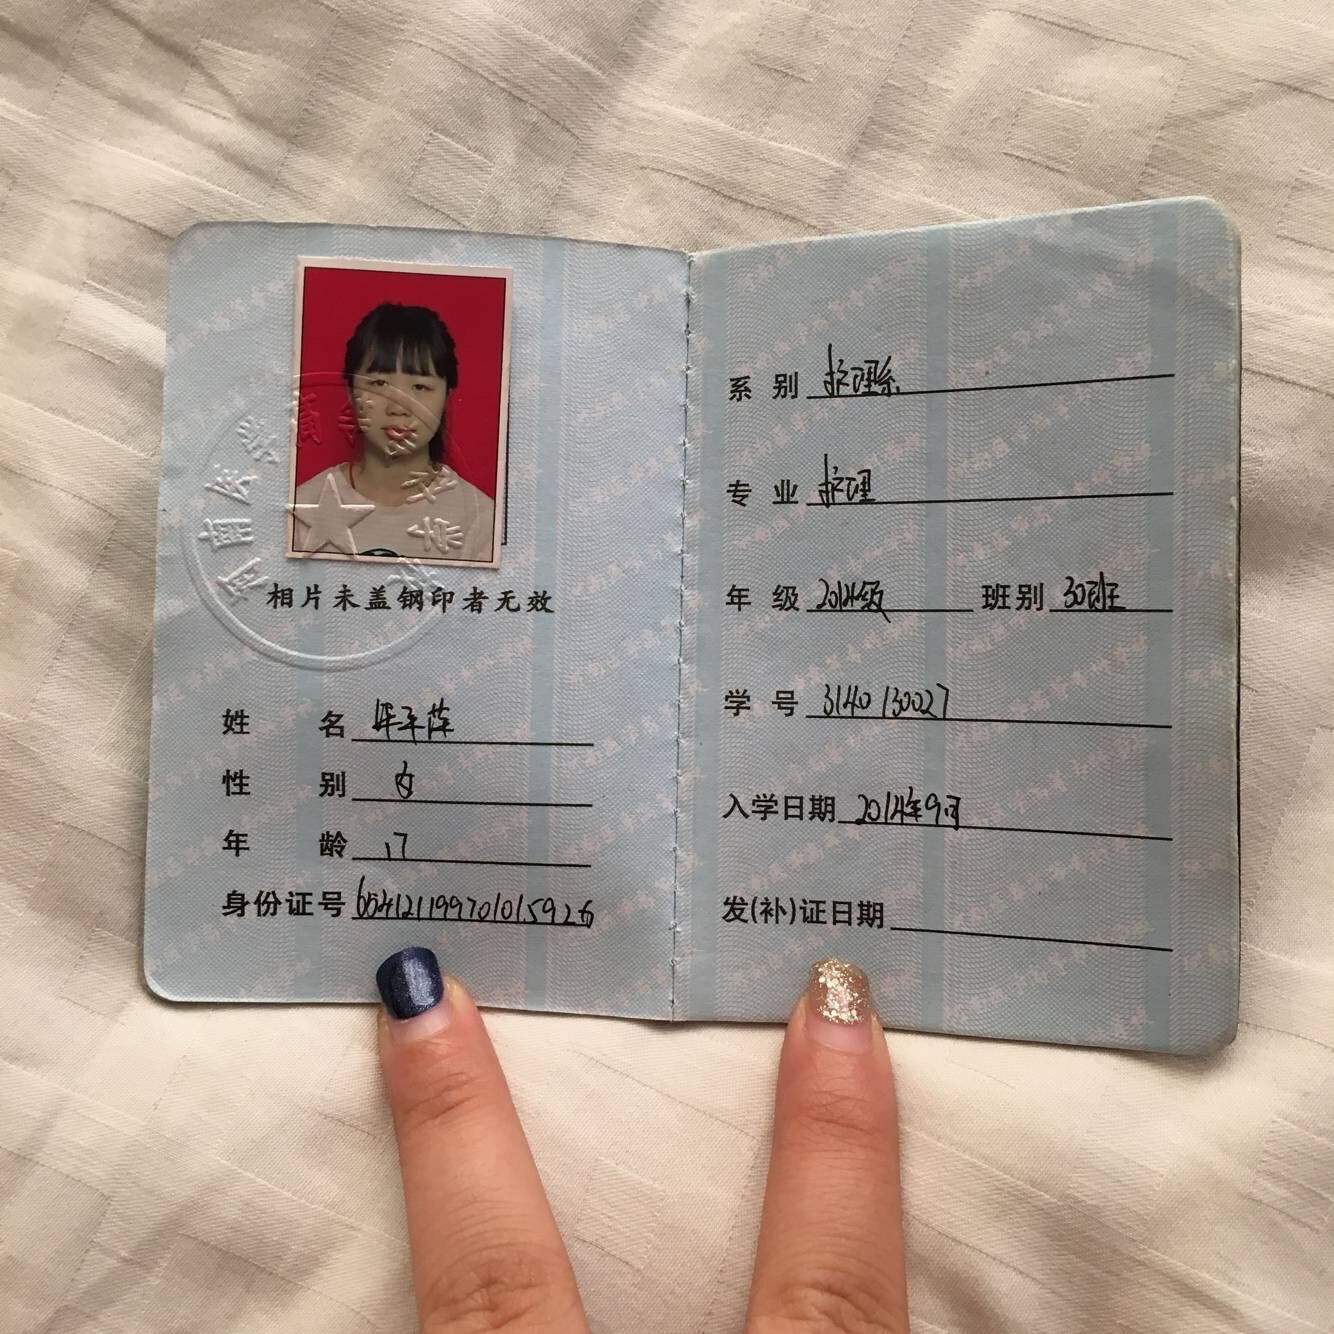 相片未盖钢印者无效
姓 名
性 别 女
年 龄 17
身份证号 654121199701015926
系 别 护理系
专 业 护理
年 级 2014级 班别 30班
学 号 3140130027
入学日期 2014年9月
发(补)证日期